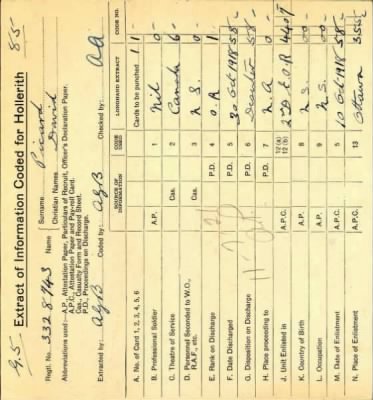 9.5- Extract of Information Coded for Hollerith 85
Regtl. No. 3328943 Name { Surname. Picard
Christian Names. David
Abbreviations used:—A.P., Attestation Paper, Particulars of Recruit, Officer's Declaration Paper.
A.P.C., Attestation Paper and Pay-roll Card.
Cas., Casualty Form and Record Sheet.
P.D., Proceedings on Discharge.
Extracted by Coded by Checked by
SOURCE OF INFORMATION CODE USED LONGHAND EXTRACT CODE NO.
A. No. of Card 1, 2, 3, 4, 5, 6 Cards to be punched 1 1
B. Professional Soldier A.P. 1 Nil 0
C. Theatre of Service Cas. 2 Canada 6
D. Personnel Seconded to W.O., R.A.F., etc. Cas. 3 N.S. 0
E. Rank on Discharge P.D. 4 O.R. 1
F. Date Discharged P.D. 5 30 Oct 1918 58-
G. Disposition on Discharge P.D. 6 58
H. Place proceeding to P.D. 7 N.A 0
J. Unit Enlisted in A.P.C. 12(a) 12(b) 2nd E.O.R.
K. Country of Birth A.P.C. 8 N.S. 00
L. Occupation A.P.C. 9 N.S. 0
M. Date of Enlistment A.P.C. 5 10 Oct 1918 58-
N. Place of Enlistment A.P.C. 13 Ottawa 355-